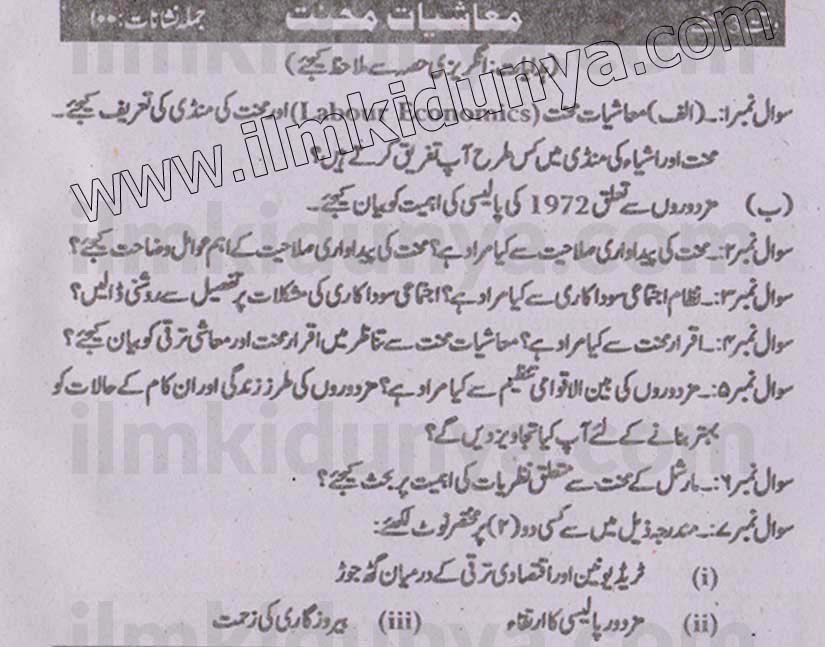 معاشیات محنت جملہ نشانات: ۱۰۰
(ہدایات: انگریزی حصہ سے ملاحظہ کیجئے)
سوال نمبر۱:۔ (الف) معاشیات محنت (Labour Economics) اور محنت کی منڈی کی تعریف کیجئے۔
محنت اور اشیاء کی منڈی میں کس طرح آپ تفریق کرتے ہیں؟
(ب) مزدوروں سے تعلق 1972 کی پالیسی کی اہمیت کو بیان کیجئے۔
سوال نمبر۲:۔ محنت کی پیداواری صلاحیت سے کیا مراد ہے؟ محنت کی پیداواری صلاحیت کے اہم عوامل وضاحت کیجئے؟
سوال نمبر۳:۔ نظام اجتماعی سوداکاری سے کیا مراد ہے؟ اجتماعی سوداکاری کی مشکلات پر تفصیل سے روشنی ڈالیں؟
سوال نمبر۴:۔ اقرار محنت سے کیا مراد ہے؟ معاشیات محنت سے تناظر میں اقرار محنت اور معاشی ترقی کو بیان کیجئے؟
سوال نمبر۵:۔ مزدوروں کی بین الاقوامی تنظیم سے کیا مراد ہے؟ مزدوروں کی طرز زندگی اور ان کام کے حالات کو
بہتر بنانے کے لئے آپ کیا تجاویز دیں گے؟
سوال نمبر۶:۔ مارشل کے محنت سے متعلق نظریات کی اہمیت پر بحث کیجئے؟
سوال نمبر۷:۔ مندرجہ ذیل میں سے کسی دو (۲) پر مختصر نوٹ لکھئے:
(i) ٹریڈ یونین اور اقتصادی ترقی کے درمیان گٹھ جوڑ
(ii) مزدور پالیسی کا ارتقاء (iii) بیروزگاری کی زحمت
www.ilmkidunya.com
ilmkidunya.com
ilmkidunya.com
ilmkidunya.com